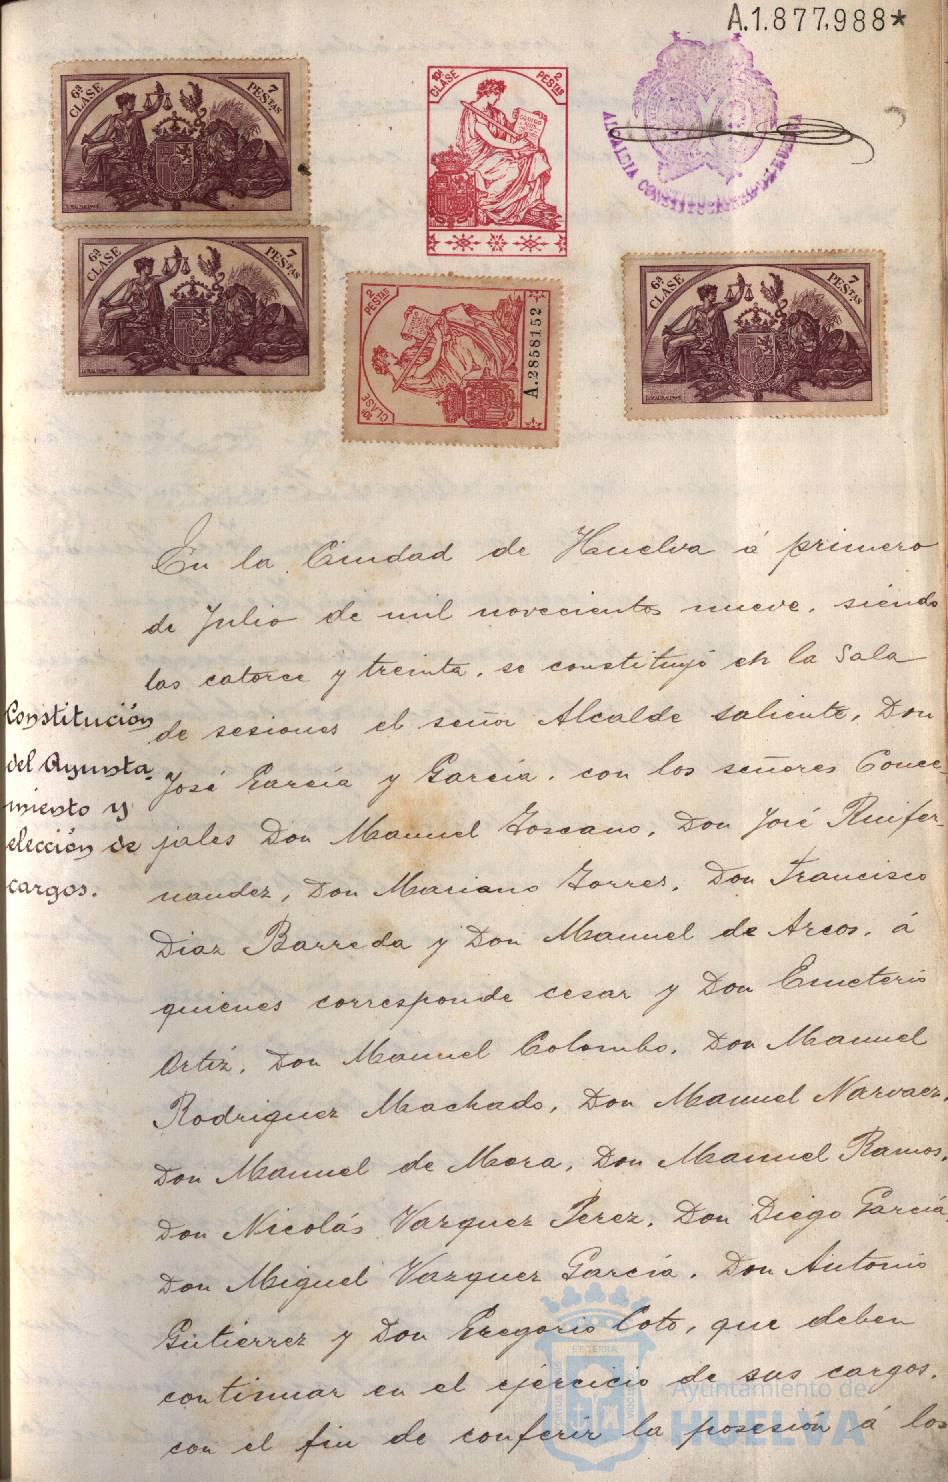 A.1.877.988*
6ª CLASE 7 PESTAS
10ª CLASE 2 PESTAS
ALCALDIA CONSTITUCIONAL DE HUELVA
6ª CLASE 7 PESTAS
10ª CLASE 2 PESTAS
A.2858152
6ª CLASE 7 PESTAS
En la Ciudad de Huelva á primero
de Julio de mil novecientos nueve, siendo
las catorce y treinta, se constituyó en la Sala
de sesiones el señor Alcalde saliente, Don
José García y García, con los señores Conce-
jales Don Manuel Toscano, Don José Ruifer-
nandez, Don Mariano Torres, Don Francisco
Diaz Barreda y Don Manuel de Arcos, á
quienes corresponde cesar y Don Emeterio
Ortiz, Don Manuel Colombo, Don Manuel
Rodriguez Machado, Don Manuel Narvaez,
Don Manuel de Mora, Don Manuel Ramos,
Don Nicolás Vazquez Perez, Don Diego García
Don Miguel Vazquez García, Don Antonio
Gutierrez y Don Gregorio Coto, que deben
continuar en el ejercicio de sus cargos,
con el fin de conferir la posesión á los
Constitución
del Ayunta-
miento y
elección de
cargos.
Ayuntamiento de
HUELVA